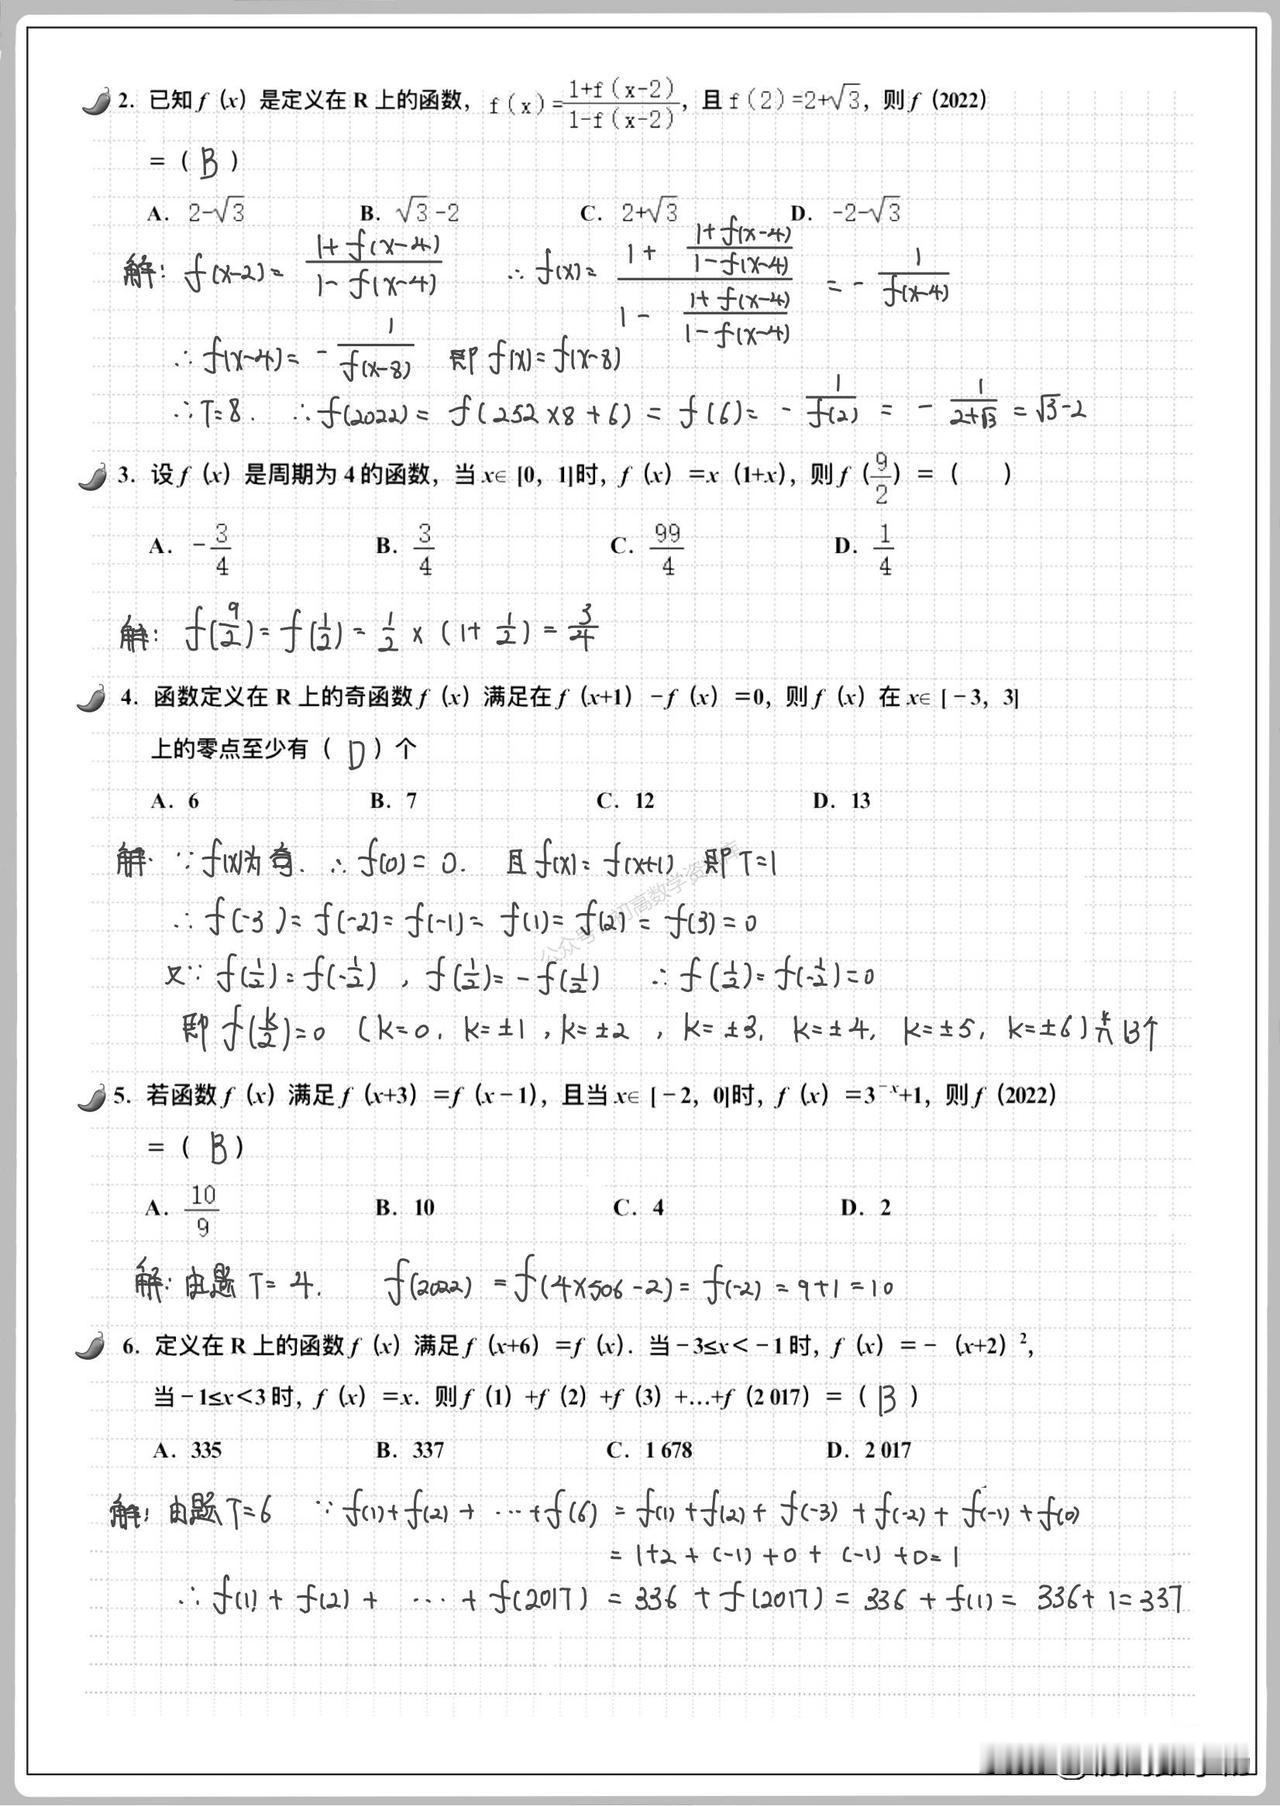 2. 已知 f（x）是定义在 R 上的函数，f(x)=\frac{1+f(x-2)}{1-f(x-2)}，且 f(2)=2+√3，则 f（2022）
=（ B ）
A. 2-√3 B. √3-2 C. 2+√3 D. -2-√3
解: f(x-2)= \frac{1+f(x-4)}{1-f(x-4)} ∴ f(x)= \frac{1+\frac{1+f(x-4)}{1-f(x-4)}}{1-\frac{1+f(x-4)}{1-f(x-4)}} = -\frac{1}{f(x-4)}
∴ f(x-4)= -\frac{1}{f(x-8)} 即 f(x)=f(x-8)
∴T=8. ∴ f(2022)= f(252×8+6) = f(6)= -\frac{1}{f(2)} = -\frac{1}{2+√3} = √3-2
3. 设 f（x）是周期为 4 的函数，当 x∈ [0，1]时，f（x）=x（1+x），则 f（\frac{9}{2}）=（ ）
A. -\frac{3}{4} B. \frac{3}{4} C. \frac{99}{4} D. \frac{1}{4}
解: f(\frac{9}{2})= f(\frac{1}{2}) = \frac{1}{2} × (1+\frac{1}{2}) = \frac{3}{4}
4. 函数定义在 R 上的奇函数 f（x）满足在 f（x+1）-f（x）=0，则 f（x）在 x∈ [-3，3]
上的零点至少有（ D ）个
A. 6 B. 7 C. 12 D. 13
解. ∵ f(x)为奇. ∴ f(0)= 0. 且 f(x)= f(x+1) 即 T=1
∴ f(-3)= f(-2)= f(-1)= f(1)= f(2) = f(3)=0
又∵ f(\frac{1}{2})=f(-\frac{1}{2}) , f(\frac{1}{2})= -f(\frac{1}{2}) ∴ f(\frac{1}{2})= f(-\frac{1}{2})=0
即 f(\frac{k}{2})=0 (k=0, k=±1, k=±2, k=±3, k=±4, k=±5, k=±6)共13个
5. 若函数 f（x）满足 f（x+3）=f（x-1），且当 x∈ [-2，0]时，f（x）=3⁻ˣ+1，则 f（2022）
=（ B ）
A. \frac{10}{9} B. 10 C. 4 D. 2
解: 由题 T= 4. f(2022) = f(4×506-2)= f(-2) = 9+1=10
6. 定义在 R 上的函数 f（x）满足 f（x+6）=f（x）. 当-3≤x<-1时，f（x）=-（x+2）²，
当-1≤x<3时，f（x）=x. 则 f（1）+f（2）+f（3）+…+f（2 017）=（ B ）
A. 335 B. 337 C. 1 678 D. 2 017
解: 由题T=6 ∵ f(1)+f(2)+ ···+f(6) = f(1)+f(2)+ f(-3)+f(-2)+ f(-1)+f(0)
= 1+2+(-1)+0+(-1)+0=1
∴ f(1)+ f(2)+ ··· + f(2017) = 336 + f(2017) = 336 + f(1) = 336+1=337